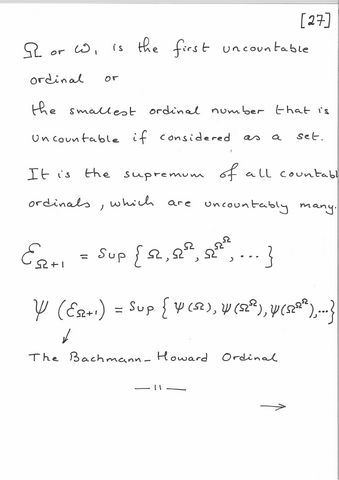 [27]
Ω or ω₁ is the first uncountable
ordinal or
the smallest ordinal number that is
uncountable if considered as a set.
It is the supremum of all countabl
ordinals, which are uncountably many.
ε_{Ω+1} = Sup { Ω, Ω^Ω, Ω^{Ω^Ω}, ... }
ψ (ε_{Ω+1}) = Sup { ψ(Ω), ψ(Ω^Ω), ψ(Ω^{Ω^Ω}), ... }
↓
The Bachmann-Howard Ordinal
— 11 —
→